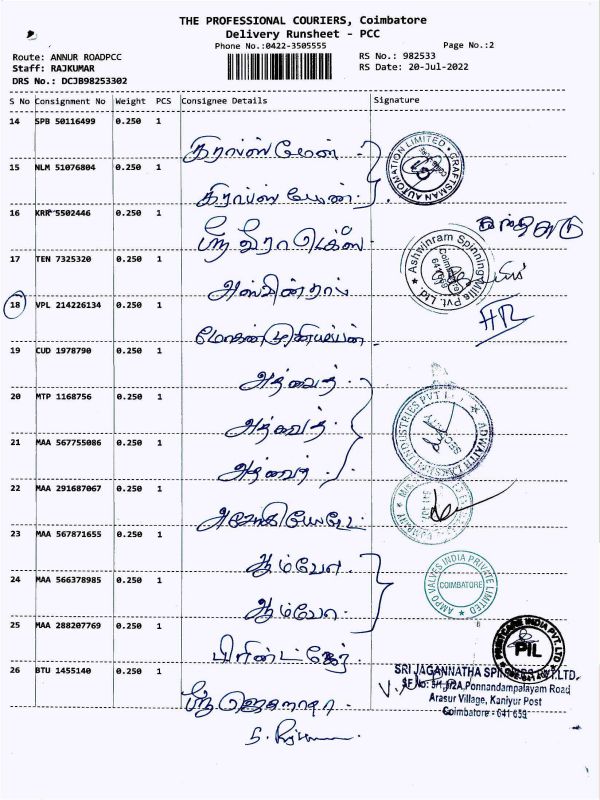 THE PROFESSIONAL COURIERS, Coimbatore
Delivery Runsheet - PCC
Phone No.:0422-3505555
Page No.:2
Route: ANNUR ROADPCC
RS No.: 982533
Staff: RAJKUMAR
RS Date: 20-Jul-2022
DRS No.: DCJB98253302
S No Consignment No Weight PCS Consignee Details Signature
14 SPB 50116499 0.250 1
கிராப்ஸ் மேன்
GRAFTSMAN AUTOMATION LIMITED
15 NLM 51076804 0.250 1
கிராப்ஸ் மேன்
16 KRR 5502446 0.250 1
ஸ்ரீ வீரா டெக்ஸ்
17 TEN 7325320 0.250 1
Ashwinram Spinning Mills Pvt. Ltd.
Coimbatore 641 659
அஸ்வின்ராம்
18 VPL 214226134 0.250 1
மோகன் முனியப்பன்
19 CUD 1978790 0.250 1
அத்வைத்
20 MTP 1168756 0.250 1
அத்வைத்
ADWAITH LAKSHMI INDUSTRIES PVT LTD
21 MAA 567755086 0.250 1
அத்வைத்
22 MAA 291687067 0.250 1
641 407
COMPANY
23 MAA 567871655 0.250 1
ஆம்வோ
24 MAA 566378985 0.250 1
AMPO VALVES INDIA PRIVATE LIMITED
COIMBATORE
ஆம்வோ
25 MAA 288207769 0.250 1
PRINTCARE INDIA PVT. LTD
PIL
பிரிண்ட் கேர்
26 BTU 1455140 0.250 1
SRI JAGANNATHA SPINNERS PVT.LTD.
SF.No: 5H,5I2A,Ponnandampalayam Road
Arasur Village, Kaniyur Post
Coimbatore - 641 659
ஸ்ரீ ஜெகநாதா